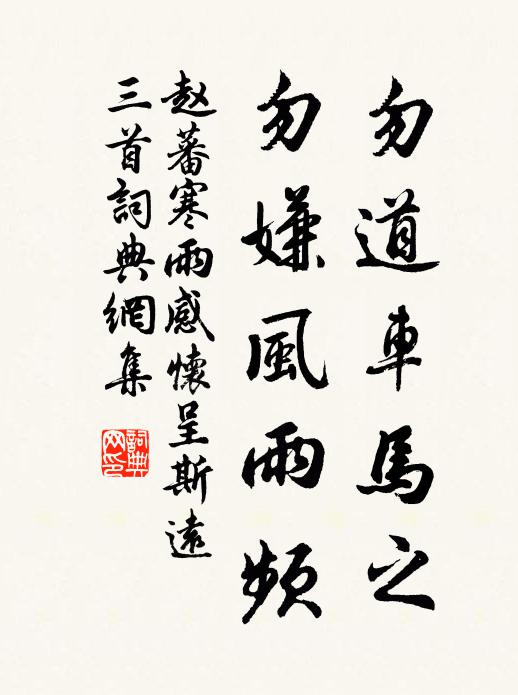 勿道車馬之
勿嫌風雨頻
赵蕃寒雨感懷呈斯遠
三首詞典網集
詞典网印